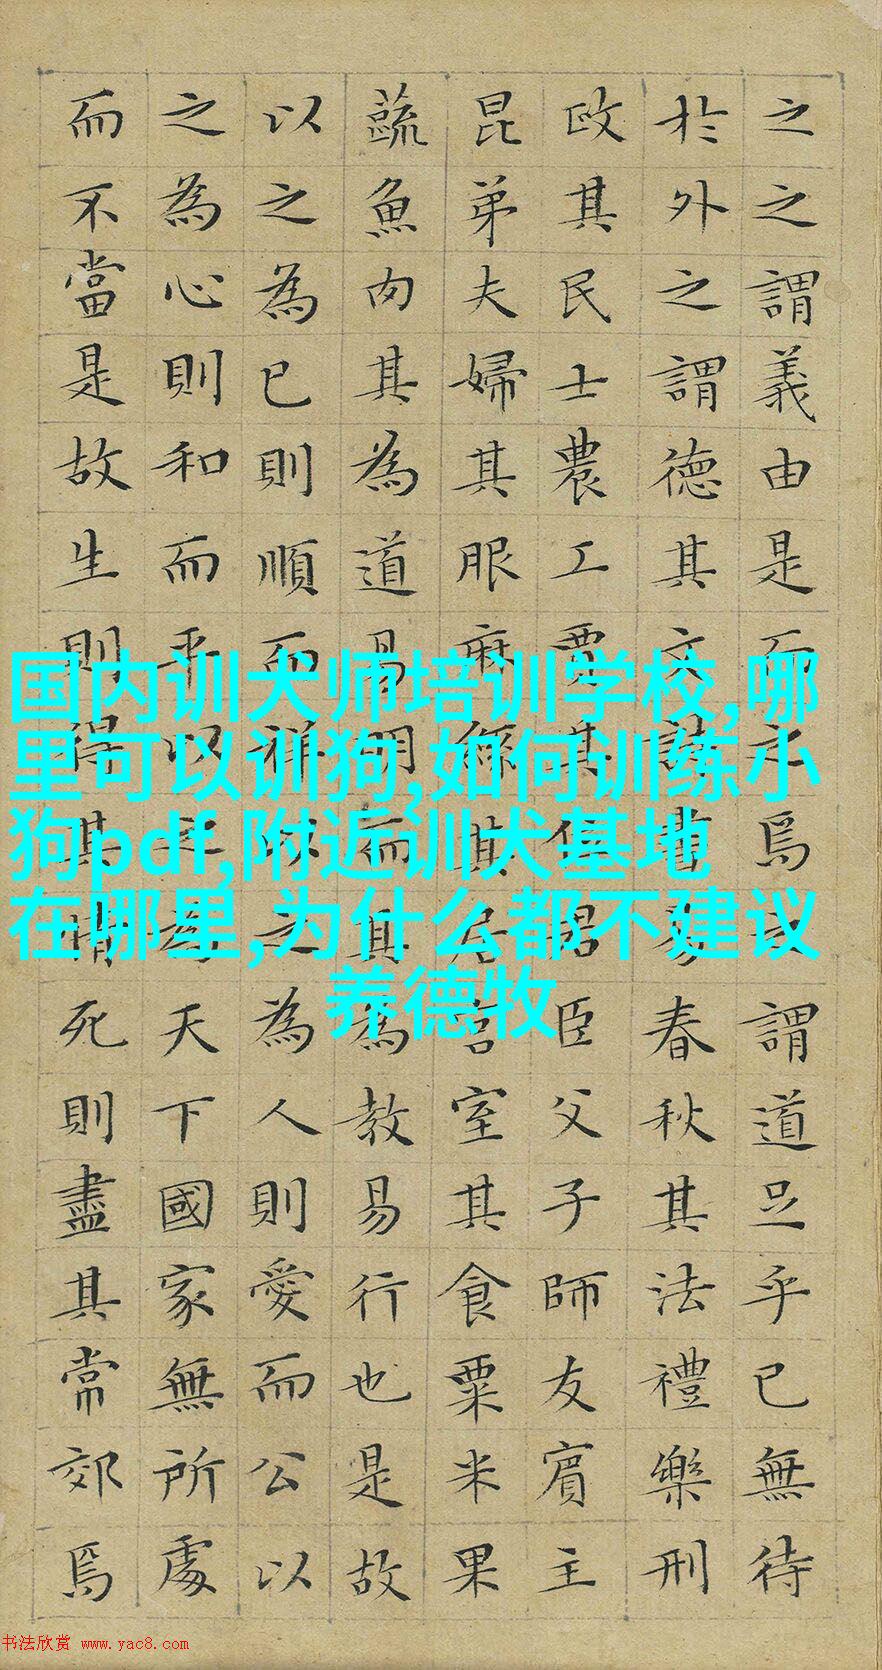 之之謂義由是而之焉之謂道足乎已無待
於外之謂德其文詩書易春秋其法禮樂刑
政其民士農工賈其位君臣父子師友賓主
昆弟夫婦其服麻絲其居宮室其食粟米果
蔬魚肉其為道易明而其為教易行也是故
以之為已則順而祥以之為人則愛而公以
之為心則和而平以之為天下國家無所處
而不當是故生則得其情死則盡其常郊焉
国内训犬师培训学校,哪
里可以训狗,如何训练小
狗pdf,附近训犬基地
在哪里,为什么都不建议
养德牧
书法欣赏 www.yac8.com